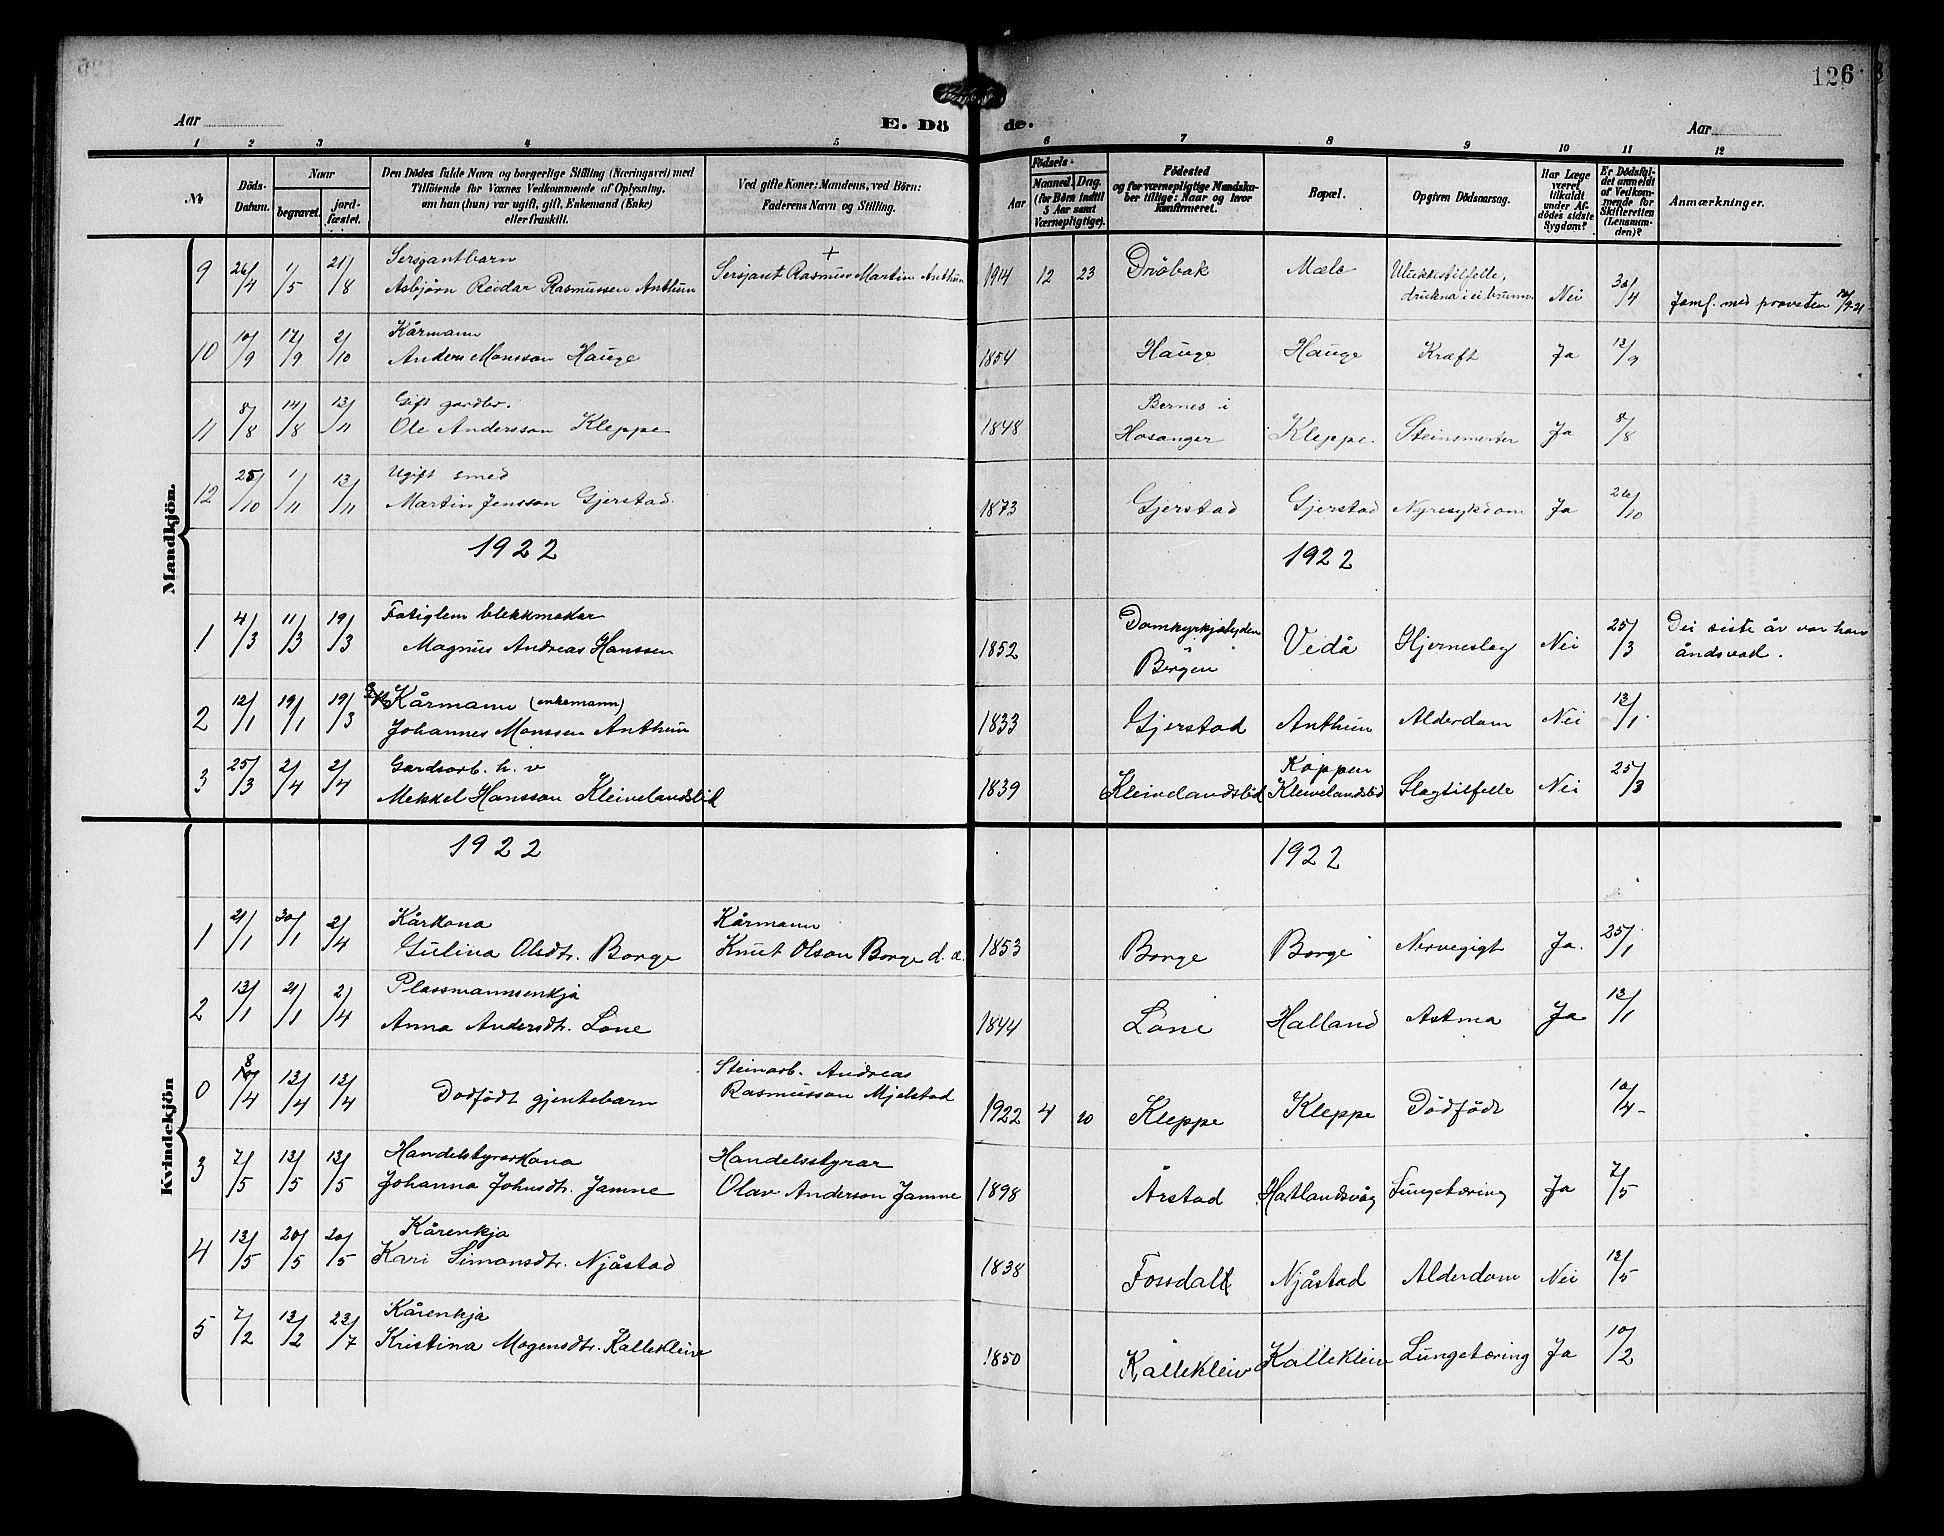 126
Aar
E. Dö de.
Aar
1 2 3 4 5 6 7 8 9 10 11 12
No
Döds-Datum.
Naar
begravet.
jord-fæstet.
Den Dödes fulde Navn og borgerlige Stilling (Næringsvei) med
Tilföiende for Voxnes Vedkommende af Oplysning,
om han (hun) var ugift, gift, Enkemand (Enke)
eller fraskilt.
Ved gifte Koner: Mandens, ved Börn:
Faderens Navn og Stilling.
Födsels-
Aar
Maaned. Dag.
(for Börn indtil
5 Aar samt
Værnepligtige).
Födested
og for værnepligtige Mandska-
ber tillige: Naar og hvor
konfirmeret.
Bopæl.
Opgiven Dödsaarsag.
Har Læge
været
tilkaldt
under Af-
dödes sidste
Sygdom?
Er Dödsfal-
det anmeldt
af Vedkom-
mende for
Skifteretten
(Lensman-
den)?
Anmærkninger.
Mandkjön.
9 26/4 1/5 21/8 Sersjantbarn
Asbjörn Reidar Rasmussen Anthun Sersjant Rasmus Martin Anthun + 1914 12 23 Dröbak Mæle Ulukkestilfelle,
drukna i ei brunn. Nei 30/4 Jamf. med provsten
10 10/9 17/9 2/10 Kårmann
Anders Monsson Hauge 1854 Hauge Hauge Kræft Ja 12/9
11 8/8 14/8 13/11 Gift gardbr.
Ole Andersson Kleppe 1848 Bernes i
Hosanger Kleppe Steinsmerter Ja 8/8
12 25/10 1/11 13/11 Ugift smed
Martin Jensson Gjerstad. 1873 Gjerstad Gjerstad Nyresykdom Ja 26/10
1922 1922
1 4/3 11/3 19/3 Fatiglem blekkmakar
Magnus Andreas Hanssen 1852 Domkyrkjebyden
Bergen Vedå Hjerneslag Nei 25/3 Dei siste år var han
åndsvad.
2 12/1 19/1 19/3 Kårmann (enkemann)
Johannes Monssen Anthun 1833 Gjerstad Anthun Alderdom Nei 12/1
3 25/3 2/4 2/4 Gardsarb. h. v
Mekkel Hansson Kleivelandslid 1839 Kleivelandslid Koppen
Kleivelandslid Slagtilfelle Nei 25/3
Kvindekjön
1922 1922
1 21/1 30/1 2/4 Kårkona
Gulina Olsdtr. Borge Kårmann
Knut Olson Borge d. æ. 1853 Borge Borge Nervegigt Ja. 25/1
2 13/1 21/1 2/4 Plassmannsenkja
Anna Andersdtr. Lone 1844 Lone Halland Astma Ja 13/1
0 8/4 13/4 13/4 Dodfödt gjentebarn Steinarb. Andreas
Rasmusson Mjelstad 1922 4 10 Kleppe Kleppe Dödfödt 10/4
3 7/5 13/5 13/5 Handelstyrarkona
Johanna Johnsdtr. Jamne Handelsstyrar
Olav Anderson Jamne 1898 Årstad Hatlandsvåg Lungetæring Ja 7/5
4 13/5 20/5 20/5 Kårenkja
Kari Simonsdtr. Njåstad 1838 Fossdall Njåstad Alderdom Nei 12/5
5 7/2 13/2 23/7 Kårenkja
Kristina Mogensdtr. Kallekleiv 1850 Kallekleiv Kallekleiv Lungetæring Ja 10/2